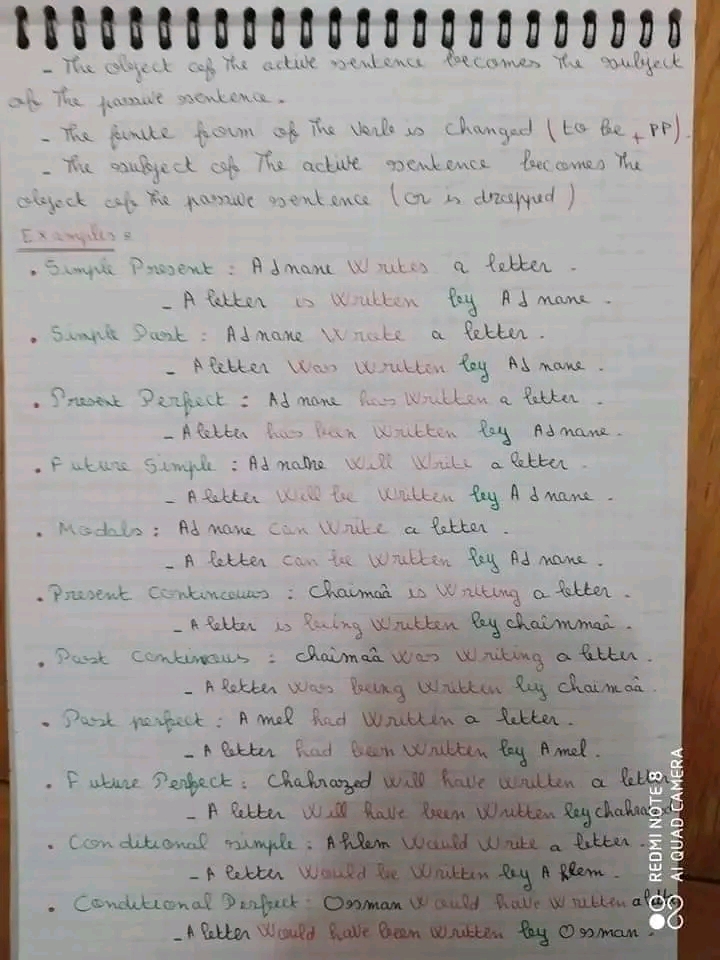 - The object of the active sentence becomes the subject
of the passive sentence.
- The finite form of the verb is changed (to be + PP).
- The subject of the active sentence becomes the
object of the passive sentence (or is dropped)
Examples :
. Simple Present : Adnane Writes a letter.
- A letter is Written by Adnane.
. Simple Past : Adnane Wrote a letter.
- A letter Was Written by Adnane.
. Present Perfect : Adnane has Written a letter.
- A letter has been Written by Adnane.
. Future Simple : Adnane Will Write a letter.
- A letter Will be Written by Adnane.
. Modals : Adnane can Write a letter.
- A letter can be Written by Adnane.
. Present Continuous : Chaimaâ is Writing a letter.
- A letter is being Written by chaimmaâ.
. Past Continous : chaimaâ Was Writing a letter.
- A letter Was being Written by chaimaâ.
. Past perfect : Amel had Written a letter.
- A letter had been Written by Amel.
. Future Perfect : Chahrazed Will have written a letter
- A letter Will have been Written by chahrazed
. Conditional simple : Ahlem Would Write a letter.
- A letter Would be Written by Ahlem.
. Conditional Perfect : Ossman Would have Written a
- A letter Would have been Written by Ossman.
REDMI NOTE 8
AI QUAD CAMERA